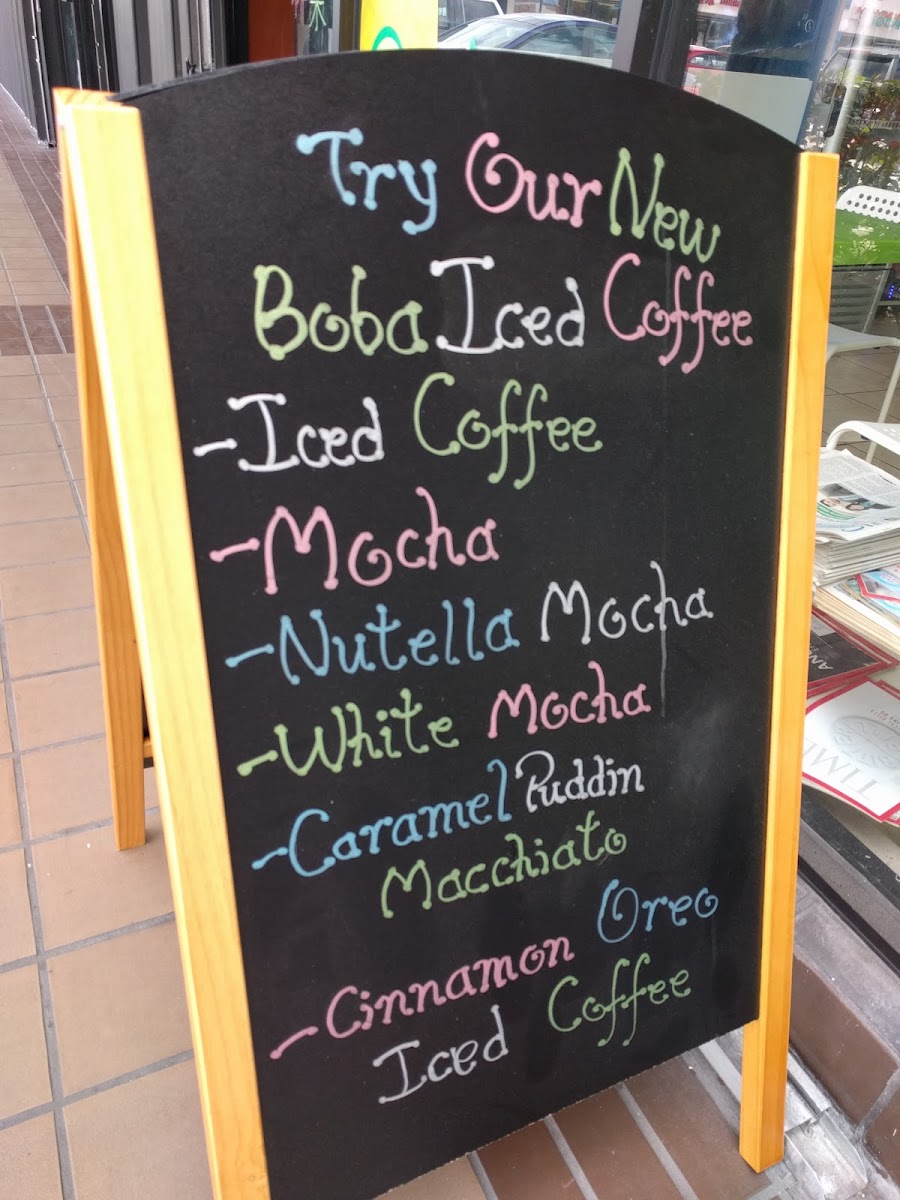 Try Our New
Boba Iced Coffee
-Iced Coffee
-Mocha
-Nutella Mocha
-White Mocha
-Caramel Puddin
Macchiato
-Cinnamon Oreo
Iced Coffee
TIME